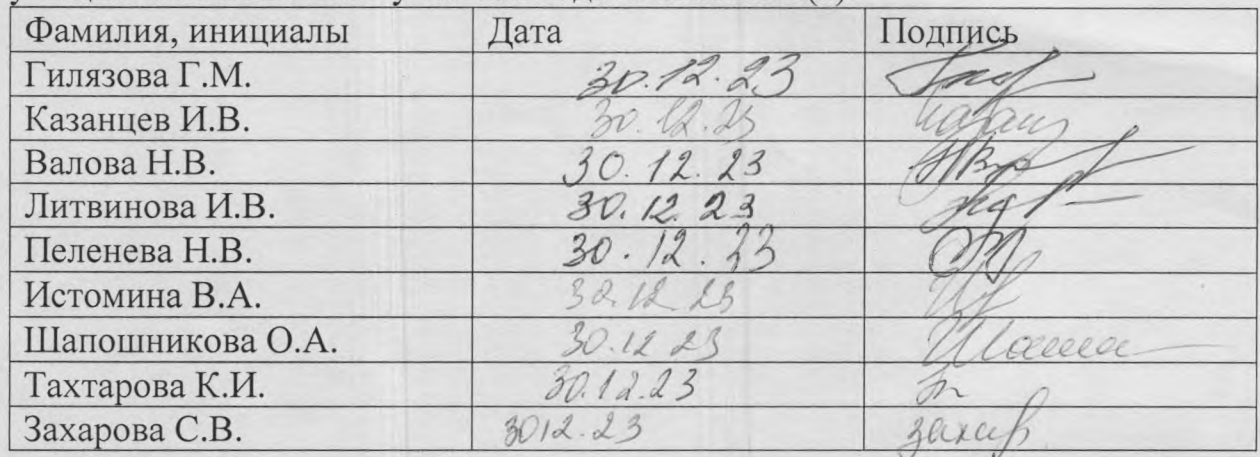 Фамилия, инициалы Дата Подпись
Гилязова Г.М. 30.12.23
Казанцев И.В. 30.12.23
Валова Н.В. 30.12.23
Литвинова И.В. 30.12.23
Пеленева Н.В. 30.12.23
Истомина В.А. 30.12.23
Шапошникова О.А. 30.12 23
Тахтарова К.И. 30.12.23
Захарова С.В. 3012.23 захар